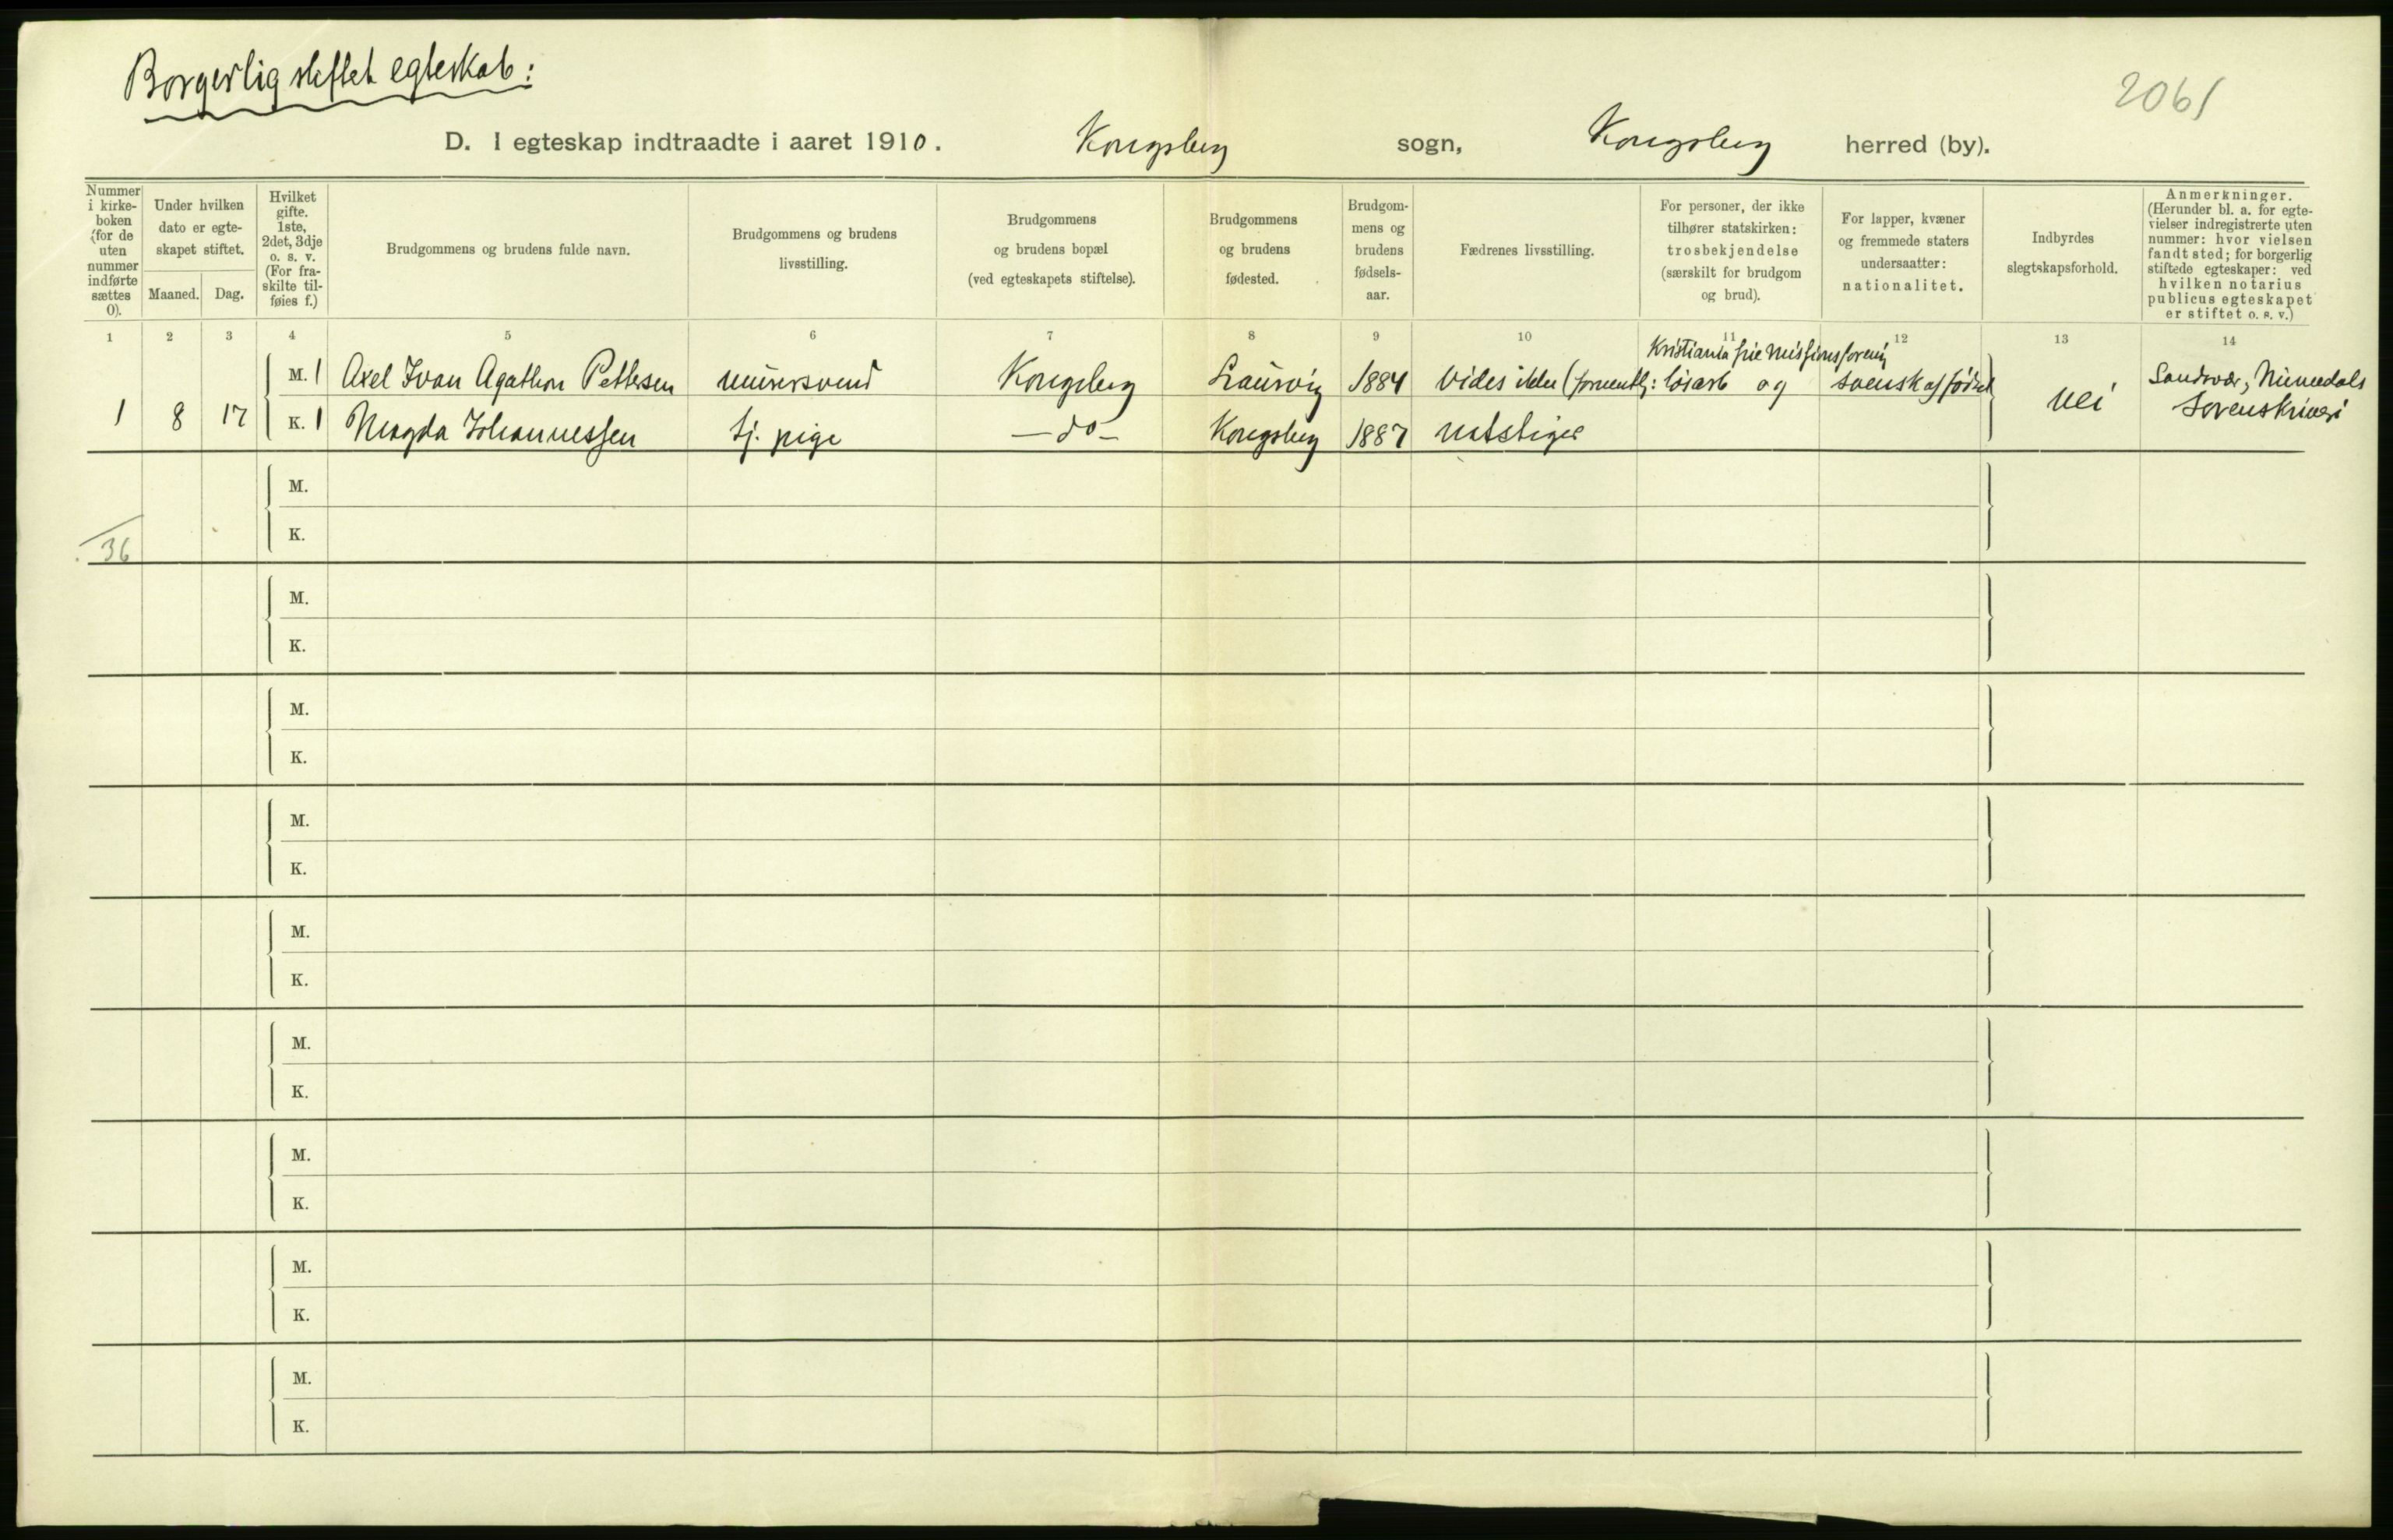 Borgerlig stiftet egteskab:
2061
D. I egteskap indtraadte i aaret 1910. Kongsberg sogn, Kongsberg herred (by).
Nummer i kirke-boken (for de uten nummer indførte sættes 0).
Under hvilken dato er egte-skapet stiftet.
Maaned. Dag.
Hvilket gifte. 1ste, 2det, 3dje o. s. v. (For fra-skilte til-føies f.)
Brudgommens og brudens fulde navn.
Brudgommens og brudens livsstilling.
Brudgommens og brudens bopæl (ved egteskapets stiftelse).
Brudgommens og brudens fødested.
Brudgom-mens og brudens fødsels-aar.
Fædrenes livsstilling.
For personer, der ikke tilhører statskirken: trosbekjendelse (særskilt for brudgom og brud).
For lapper, kvæner og fremmede staters undersaatter: nationalitet.
Indbyrdes slegtskapsforhold.
Anmerkninger. (Herunder bl. a. for egte-vielser indregistrerte uten nummer: hvor vielsen fandt sted; for borgerlig stiftede egteskaper: ved hvilken notarius publicus egteskapet er stiftet o. s. v.)
1 2 3 4 5 6 7 8 9 10 11 12 13 14
Kristiania frie Missionsforenig
M. 1 Axel Ivan Agathon Pettersen murersvend Kongsberg Laurvig 1884 Vides ikke (formentlig: løsarb og svensk af fødsel
1 8 17 K. 1 Magda Johannessen tj. pige — do — Kongsberg 1887 matstiger nei Sandsvær, Numedals Sorenskriveri
M.
K.
36
M.
K.
M.
K.
M.
K.
M.
K.
M.
K.
M.
K.
M.
K.
M.
K.